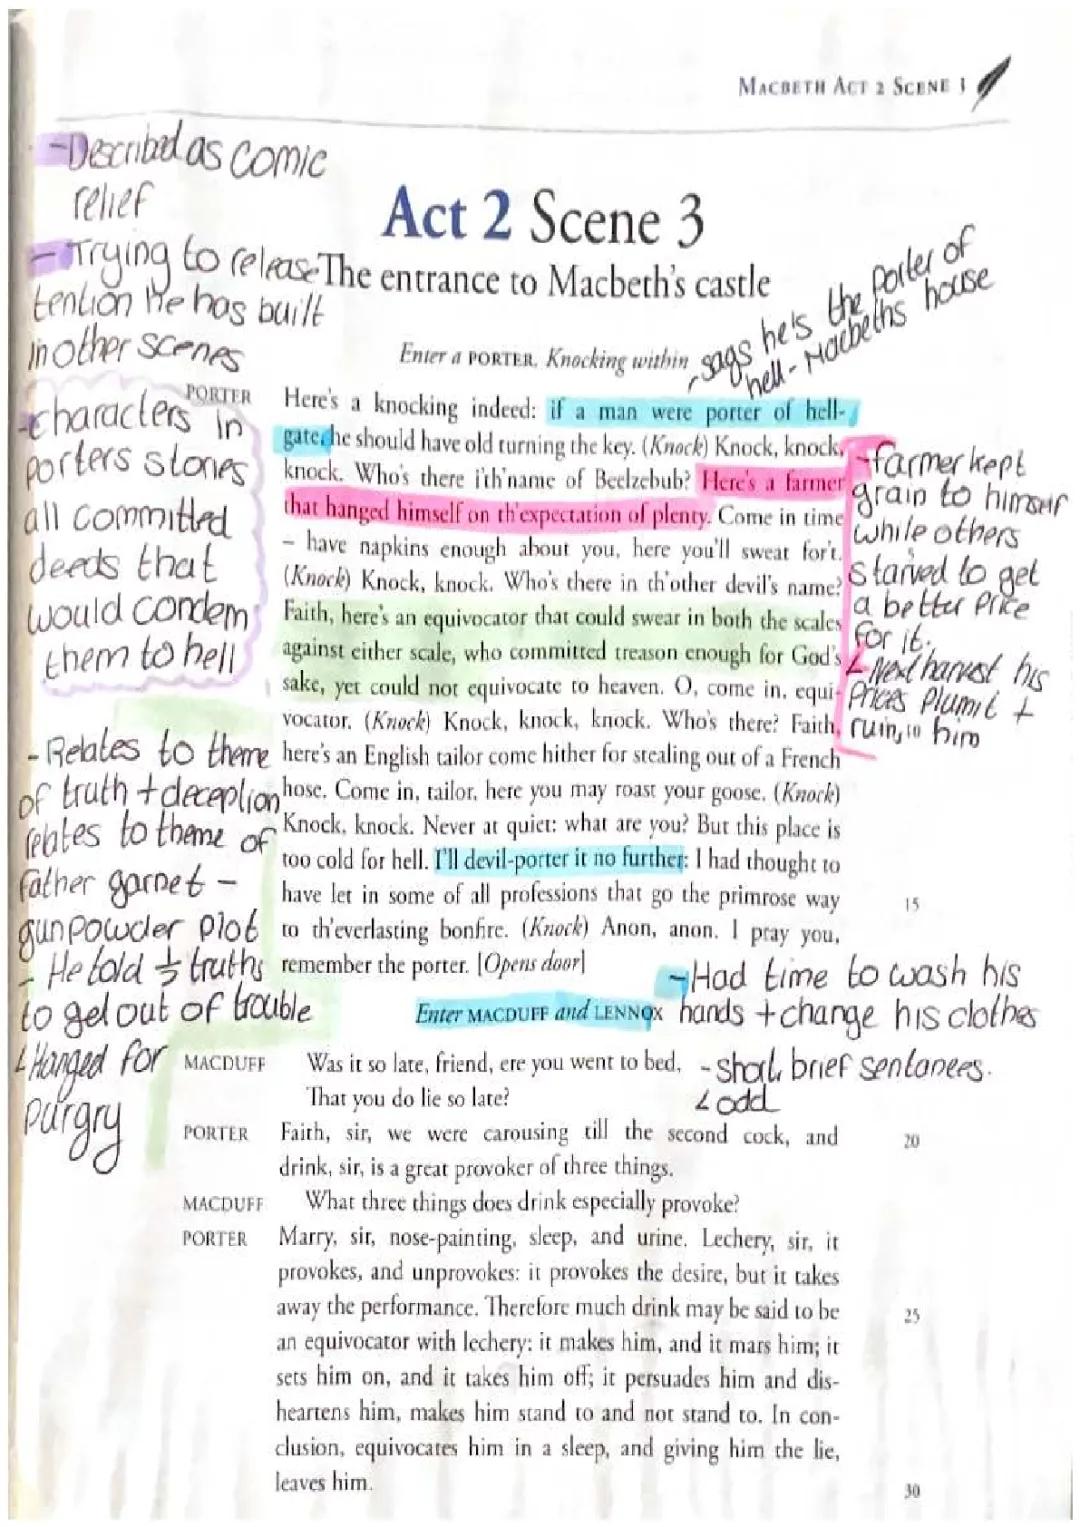 MACBETH ACT 2 SCENE 3
-Described as comic
relief
- Trying to release
tention he has built
in other scenes
Act 2 Scene 3
The entrance to Macbeth's castle
Enter a PORTER. Knocking within
says he's the porter of
hell - Macbeths house
-characters in
porters stories
all committed
deeds that
would condem
them to hell
PORTER
Here's a knocking indeed: if a man were porter of hell-
gate, he should have old turning the key. (Knock) Knock, knock,
knock. Who's there i'th'name of Beelzebub? Here's a farmer
that hanged himself on th'expectation of plenty. Come in time
– have napkins enough about you, here you'll sweat for't.
(Knock) Knock, knock. Who's there in th'other devil's name?
Faith, here's an equivocator that could swear in both the scales
against either scale, who committed treason enough for God's
sake, yet could not equivocate to heaven. O, come in, equi-
vocator. (Knock) Knock, knock, knock. Who's there? Faith,
here's an English tailor come hither for stealing out of a French
hose. Come in, tailor, here you may roast your goose. (Knock)
Knock, knock. Never at quiet: what are you? But this place is
too cold for hell. I'll devil-porter it no further: I had thought to
have let in some of all professions that go the primrose way
15
to th'everlasting bonfire. (Knock) Anon, anon. I pray you,
remember the porter. [Opens door]
-farmer kept
grain to himself
while others
starved to get
a better price
for it.
Next harvest his
prices plumit +
ruin, to him
- Relates to theme
of truth + deception
relates to theme of
father garnet -
gunpowder plot
- He told ½ truths
to get out of trouble
Hanged for
purgry
Enter MACDUFF and LENNOX
-Had time to wash his
hands + change his clothes
MACDUFF
Was it so late, friend, ere you went to bed,
That you do lie so late?
- short, brief sentances.
odd
PORTER
Faith, sir, we were carousing till the second cock, and
20
drink, sir, is a great provoker of three things.
MACDUFF
What three things does drink especially provoke?
PORTER
Marry, sir, nose-painting, sleep, and urine. Lechery, sir, it
provokes, and unprovokes: it provokes the desire, but it takes
away the performance. Therefore much drink may be said to be
25
an equivocator with lechery: it makes him, and it mars him; it
sets him on, and it takes him off; it persuades him and dis-
heartens him, makes him stand to and not stand to. In con-
clusion, equivocates him in a sleep, and giving him the lie,
leaves him.
30